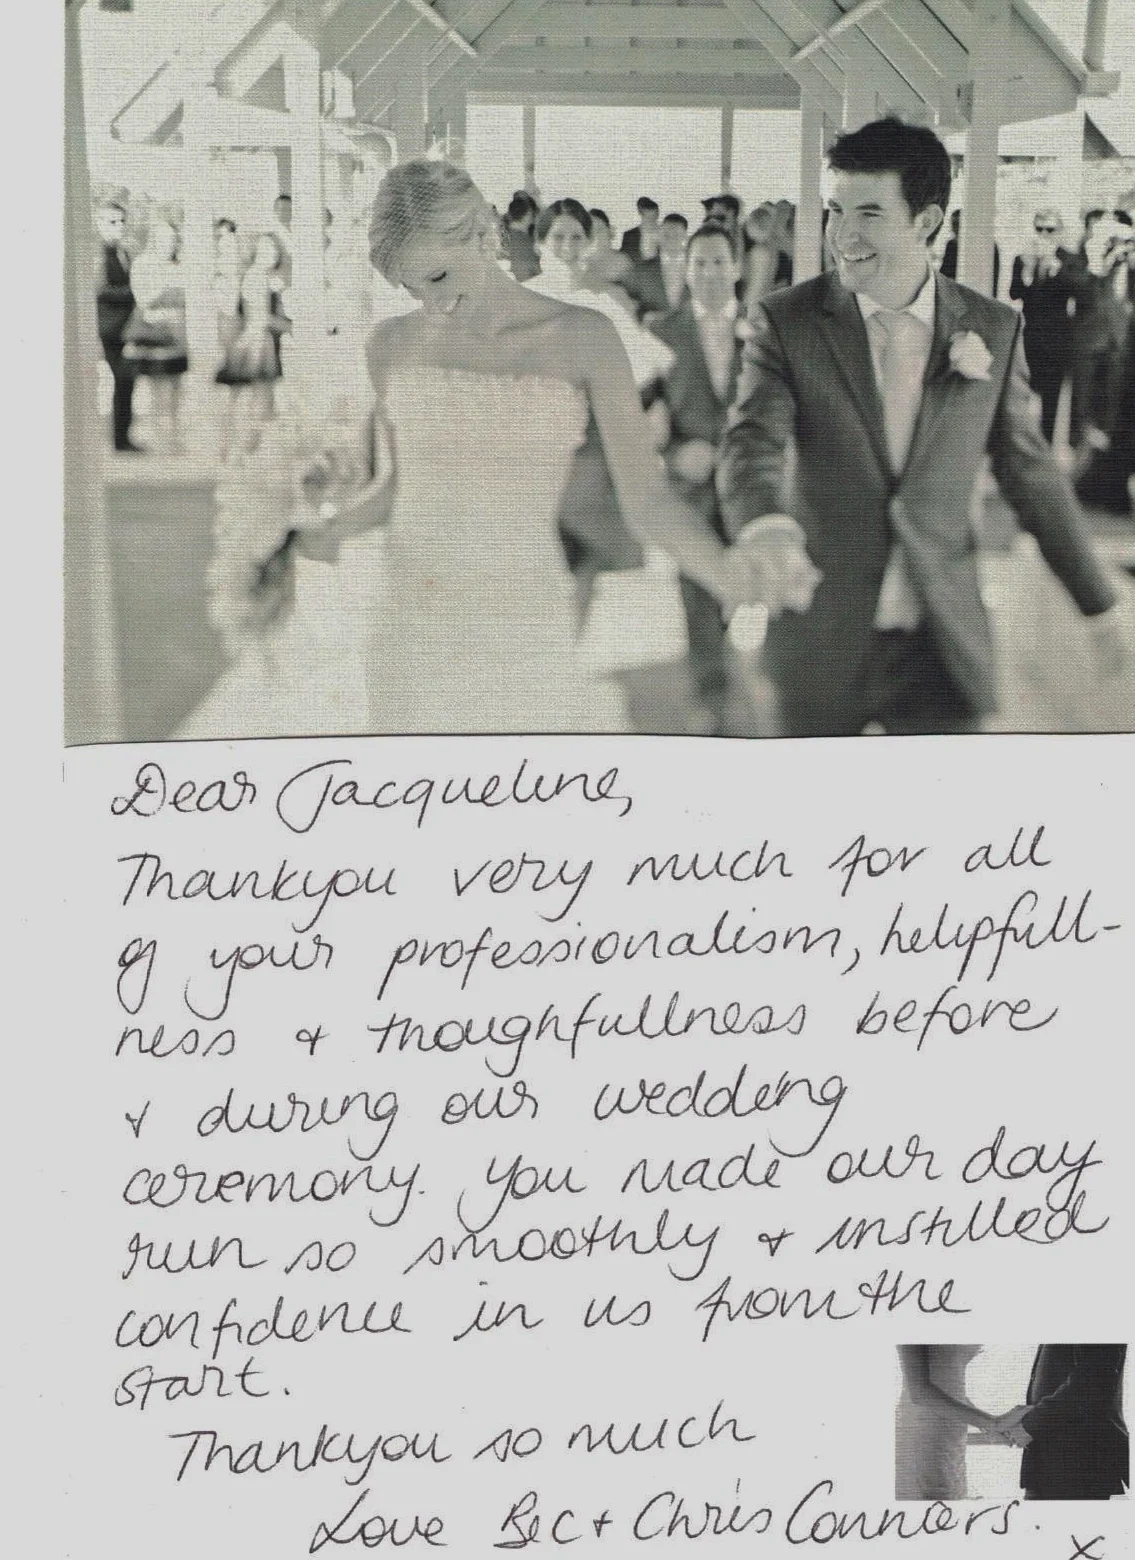 Dear Jacqueline,
Thankyou very much for all
of your professionalism, helpfull-
ness & thoughfullness before
& during our wedding
ceremony. You made our day
run so smoothly & instilled
confidence in us from the
start.
Thankyou so much
Love Bec & Chris Connors.
x